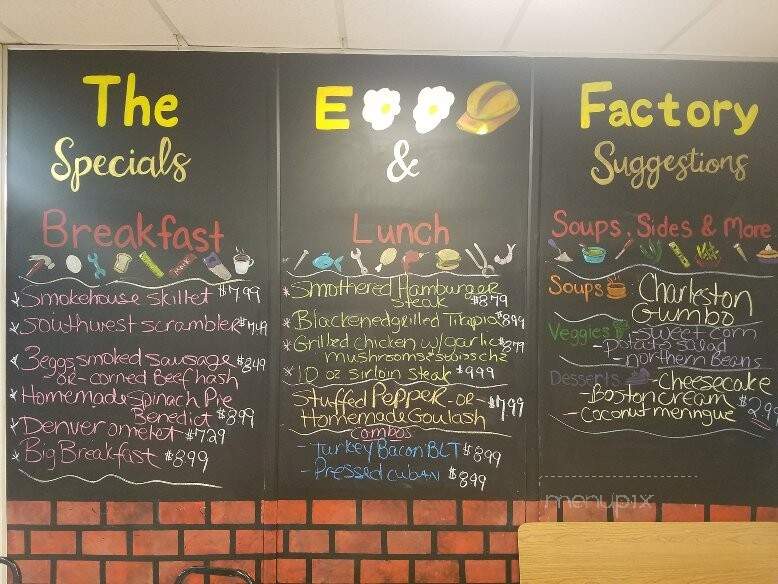 The
Specials
Breakfast
Smokehouse skillet $7.99
Southwest scrambler $7.49
3 eggs smoked sausage $8.49
or - corned Beef hash
Homemade Spinach Pie
Benedict $8.99
Denver omelet $7.29
Big Breakfast $8.99
E
&
Lunch
Smothered Hamburger
steak $8.79
Blackenedgrilled Tilapia $8.99
Grilled chicken w/garlic $8.79
mushrooms & swiss chz
10 oz sirloin steak $9.99
Stuffed Pepper - or - $7.99
Homemade Goulash
Combos
- Turkey Bacon BLT $8.99
- Pressed cuban $8.99
Factory
Suggestions
Soups, Sides & More
Soups Charleston
Gumbo
Veggies - sweet corn
- potato salad
- northern Beans
Desserts - Cheesecake
- Boston cream $2.99
- coconut meringue
menupix